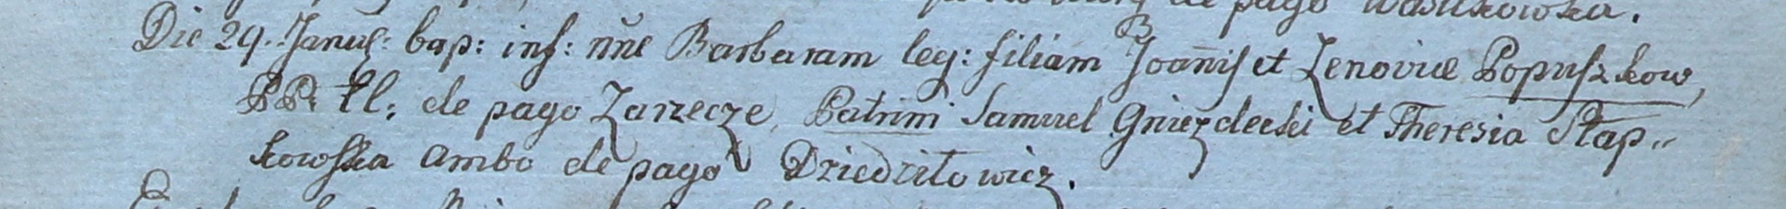 de pago Wasilkowska.
Die 29. Januar: bap: inf: nn̄e Barbaram leg: filiam Joan̄is et Zenoviæ Popuszkow,
PP. ꝉl: de pago Zarzecze, Patrini Samuel Gniezdecki et Theresia Stap„
kowska ambo de pago Dziedziłowicz.